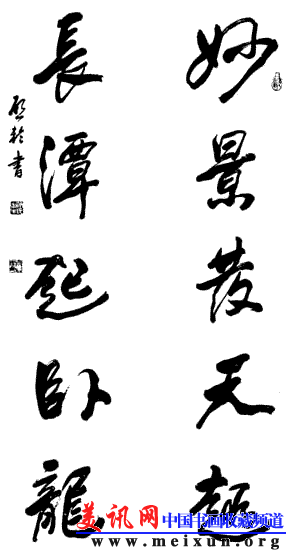 妙景發天趣
長潭起卧龍
美讯网 中国书画收藏频道
www.meixun.org